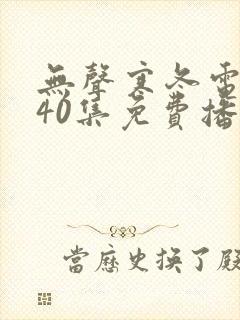 無聲寒冬電
40集免費播
當歷史換了殿